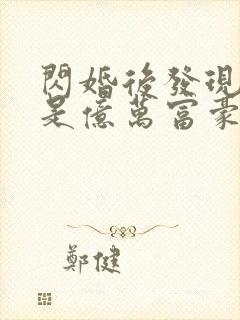 閃婚後發現
是億萬富豪
鄭健